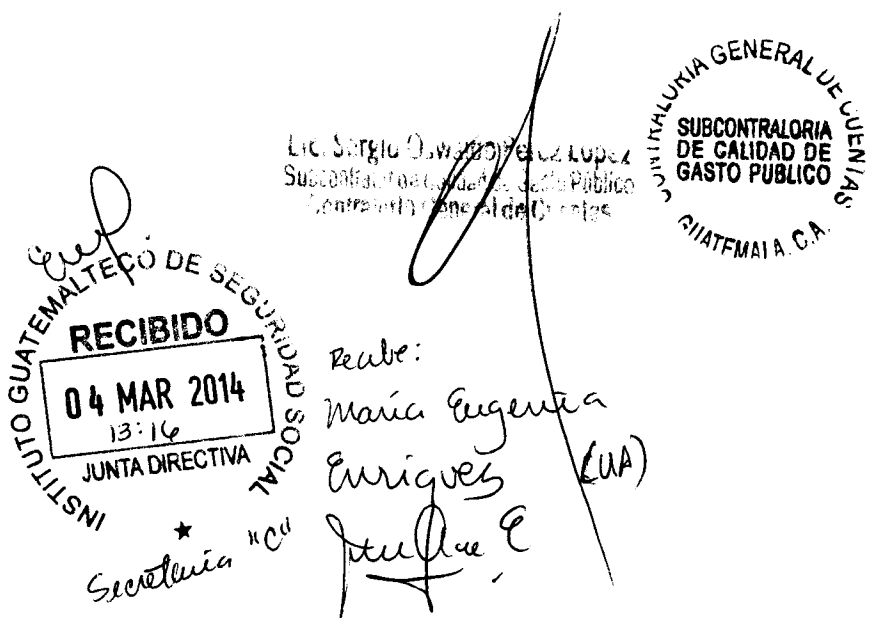 CONTRALORIA GENERAL DE CUENTAS
SUBCONTRALORIA
DE CALIDAD DE
GASTO PUBLICO
GUATEMALA. C.A.
Lic. Sergio Oswaldo Pérez López
Subcontralor de Calidad de Gasto Público
Contraloría General de Cuentas
INSTITUTO GUATEMALTECO DE SEGURIDAD SOCIAL
RECIBIDO
04 MAR 2014
13:16
JUNTA DIRECTIVA
Secretaria "C"
Recibe:
María Eugenia
Enriquez (UA)